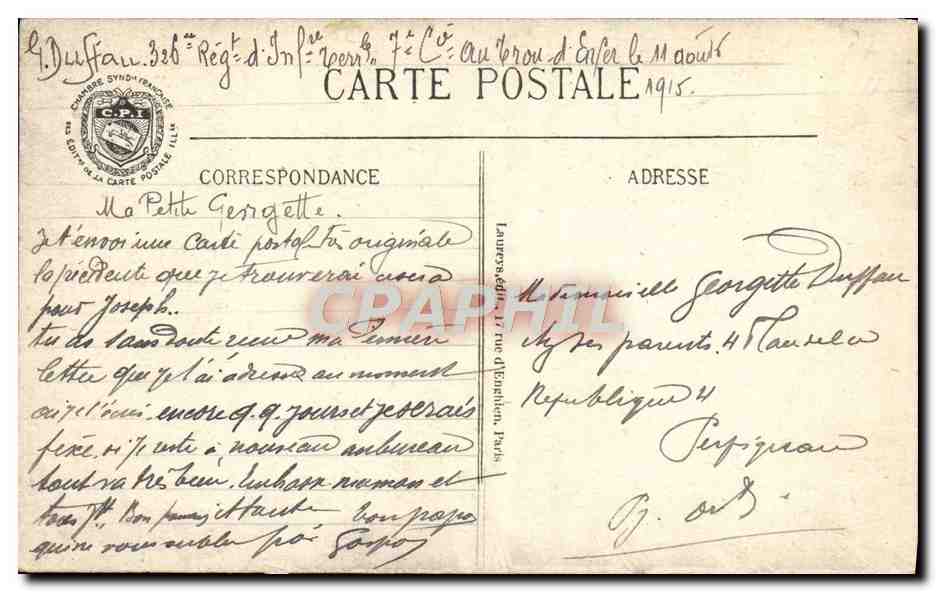 G. Duffau 326ème Régt d'Infre Terrle 7e Cie au trou d'Enfer le 11 août
1915.
CARTE POSTALE
CHAMBRE SYNDle FRANÇAISE
DES ÉDITrs DE LA CARTE POSTALE ILLée
C.P.I
CORRESPONDANCE
ADRESSE
Ma Petite Georgette.
Je t'envoi une Carte postale très originale
la précédente que je trouverai sera
pour Joseph..
tu as sans doute reçu ma dernière
lettre que je t'ai adressé au moment
où je t'écris encore q.q. jours et je serais
fixé si je reste à nouveau au bureau
tout va très bien. Embrasse maman et
Bon papa
qui ne vous oublie pas Gaspar
Laureys, édit., 17 rue d'Enghien, Paris
Mademoiselle Georgette Duffau
chez ses parents 4 Place de la
République 4
Perpignan
P. Or.
CPAPHIL